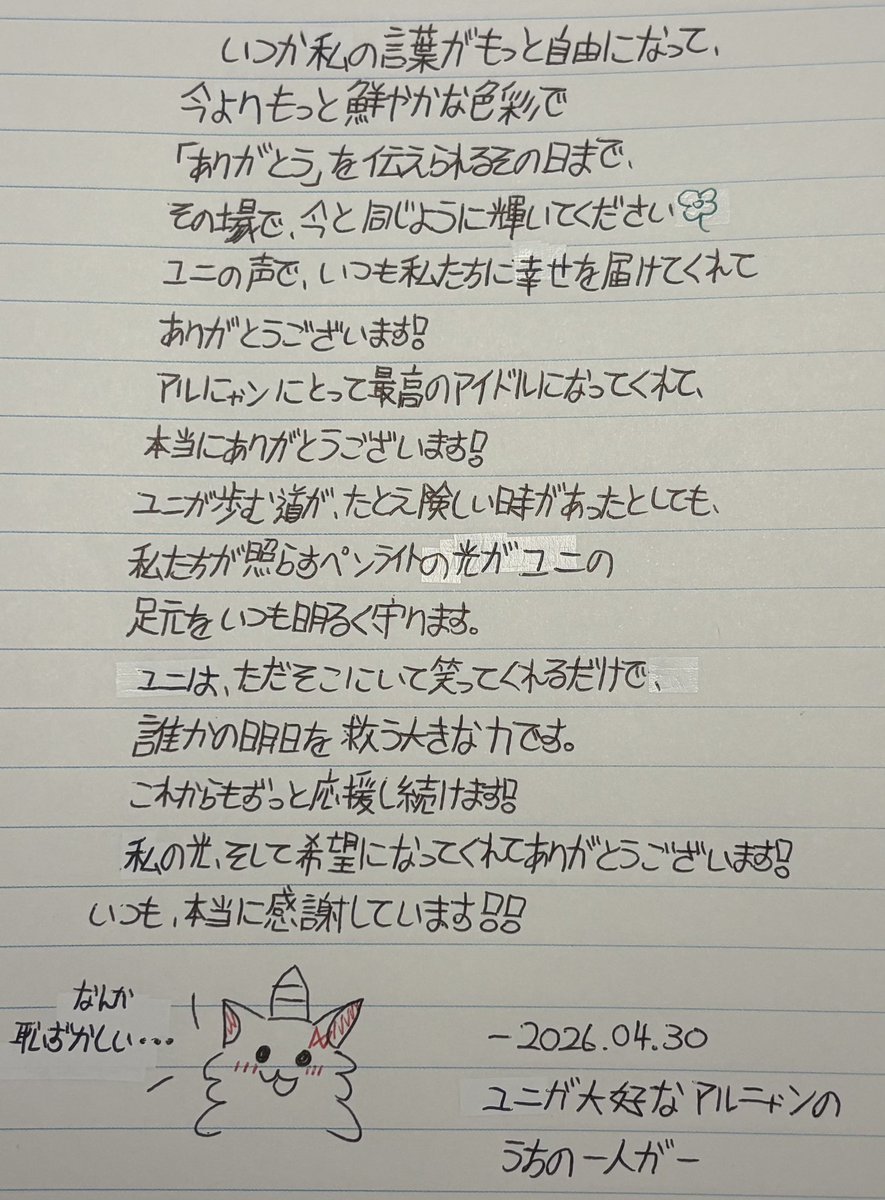 いつか私の言葉がもっと自由になって、
今よりもっと鮮やかな色彩で
「ありがとう」を伝えられるその日まで、
その場で、今と同じように輝いてください
ユニの声で、いつも私たちに幸せを届けてくれて
ありがとうございます!
アルにゃンにとって最高のアイドルになってくれて、
本当にありがとうございます!
ユニが歩む道が、たとえ険しい時があったとしても、
私たちが照らすペンライトの光がユニの
足元をいつも明るく守ります。
ユニは、ただそこにいて笑ってくれるだけで、
誰かの明日を救う大きな力です。
これからもずっと応援し続けます!
私の光、そして希望になってくれてありがとうございます!
いつも、本当に感謝しています!!
なんか
恥ずかしい...
-2026.04.30
ユニが大好きなアルニャンの
うちの一人が-